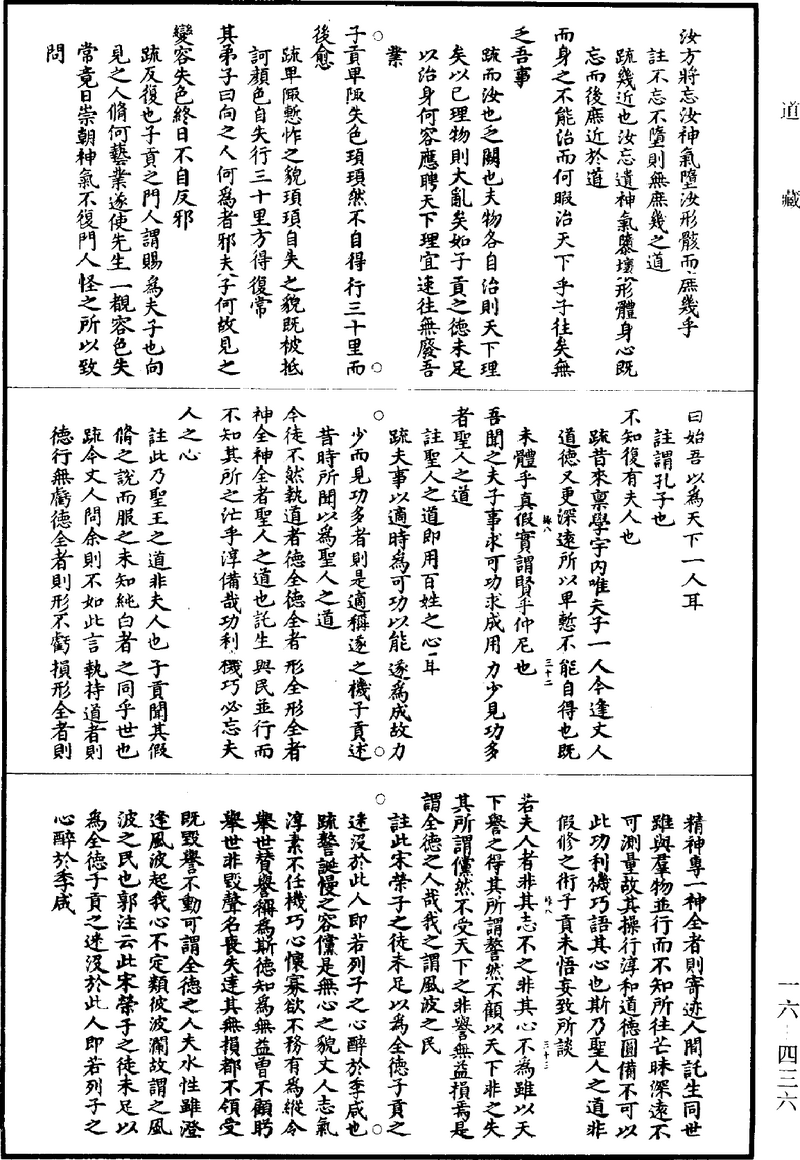 道藏
汝方將忘汝神氣墮汝形骸而庶幾乎
註不忘不墮則無庶幾之道
疏幾近也汝忘遺神氣隳壞形體身心既
忘而後庶近於道
而身之不能治而何暇治天下乎子往矣無
乏吾事
疏而汝也乏闕也夫物各自治則天下理
矣以已理物則大亂矣如子貢之德未足
以治身何容應聘天下理宜速往無廢吾
業
子貢卑陬失色頊頊然不自得行三十里而
後愈
疏卑陬慙怍之貌頊頊自失之貌既被抵
訶顏色自失行三十里方得復常
其弟子曰向之人何為者邪夫子何故見之
變容失色終日不自反邪
疏反復也子貢之門人謂賜為夫子也向
見之人脩何藝業遂使先生一覩容色失
常竟日崇朝神氣不復門人怪之所以致
問
曰始吾以為天下一人耳
註謂孔子也
不知復有夫人也
疏昔來禀學宇內唯夫子一人今逢丈人
道德又更深遠所以卑慙不能自得也既
未體乎真假實謂賢乎仲尼也
吾聞之夫子事求可功求成用力少見功多
者聖人之道
註聖人之道即用百姓之心耳
疏夫事以適時為可功以能遂為成故力
少而見功多者則是適稱遂之機子貢述
昔時所聞以為聖人之道
今徒不然執道者德全德全者形全形全者
神全神全者聖人之道也託生與民並行而
不知其所之汒乎淳備哉功利機巧必忘夫
人之心
註此乃聖王之道非夫人也子貢聞其假
脩之說而服之未知純白者之同乎世也
疏今丈人問余則不如此言執持道者則
德行無虧德全者則形不虧損形全者則
精神專一神全者則寄迹人間託生同世
雖與羣物並行而不知所往芒昧深遠不
可測量故其操行淳和道德圓備不可以
此功利機巧語其心也斯乃聖人之道非
假修之術子貢未悟妄致所談
若夫人者非其志不之非其心不為雖以天
下譽之得其所謂謷然不顧以天下非之失
其所謂儻然不受天下之非譽無益損焉是
謂全德之人哉我之謂風波之民
註此宋榮子之徒未足以為全德子貢之
迷沒於此人即若列子之心醉於季咸也
疏謷誕慢之容儻是無心之貌丈人志氣
淳素不任機巧心懷寡欲不務有為縱令
舉世贊譽稱為斯德知為無益曾不顧盻
舉世非毀聲名喪失達其無損都不領受
既毀譽不動可謂全德之人夫水性雖澄
逢風波起我心不定類彼波瀾故謂之風
波之民也郭注云此宋榮子之徒未足以
為全德子貢之迷沒於此人即若列子之
心醉於季咸
一六·四三六